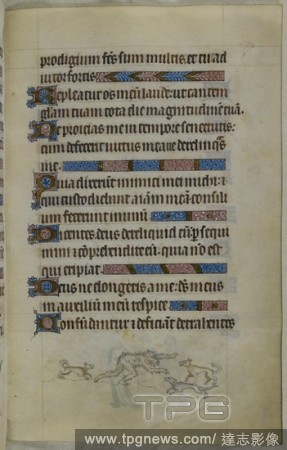 prodigium fcs sum multis. et tu ad
iutor fortis
Repleatur os meum laude: ut cantem
glam tuam tota die magnitudinem tuam.
Ne proicias me in tempore senectutis:
cum defecerit virtus mea ne derelinqs
me.
Quia dixerunt inimici mei michi: et
qui custodiebant aiam meam consilium
fecerunt in unum
Dicentes. deus dereliquid eum persequi
mini et comprehendite eum. quia non est
qui eripiat
Deus ne elongeris a me: ds meus
in auxilium meum respice
Confundantur et deficiant detrahentes
TPG
www.tpgnews.com/ 達志影像